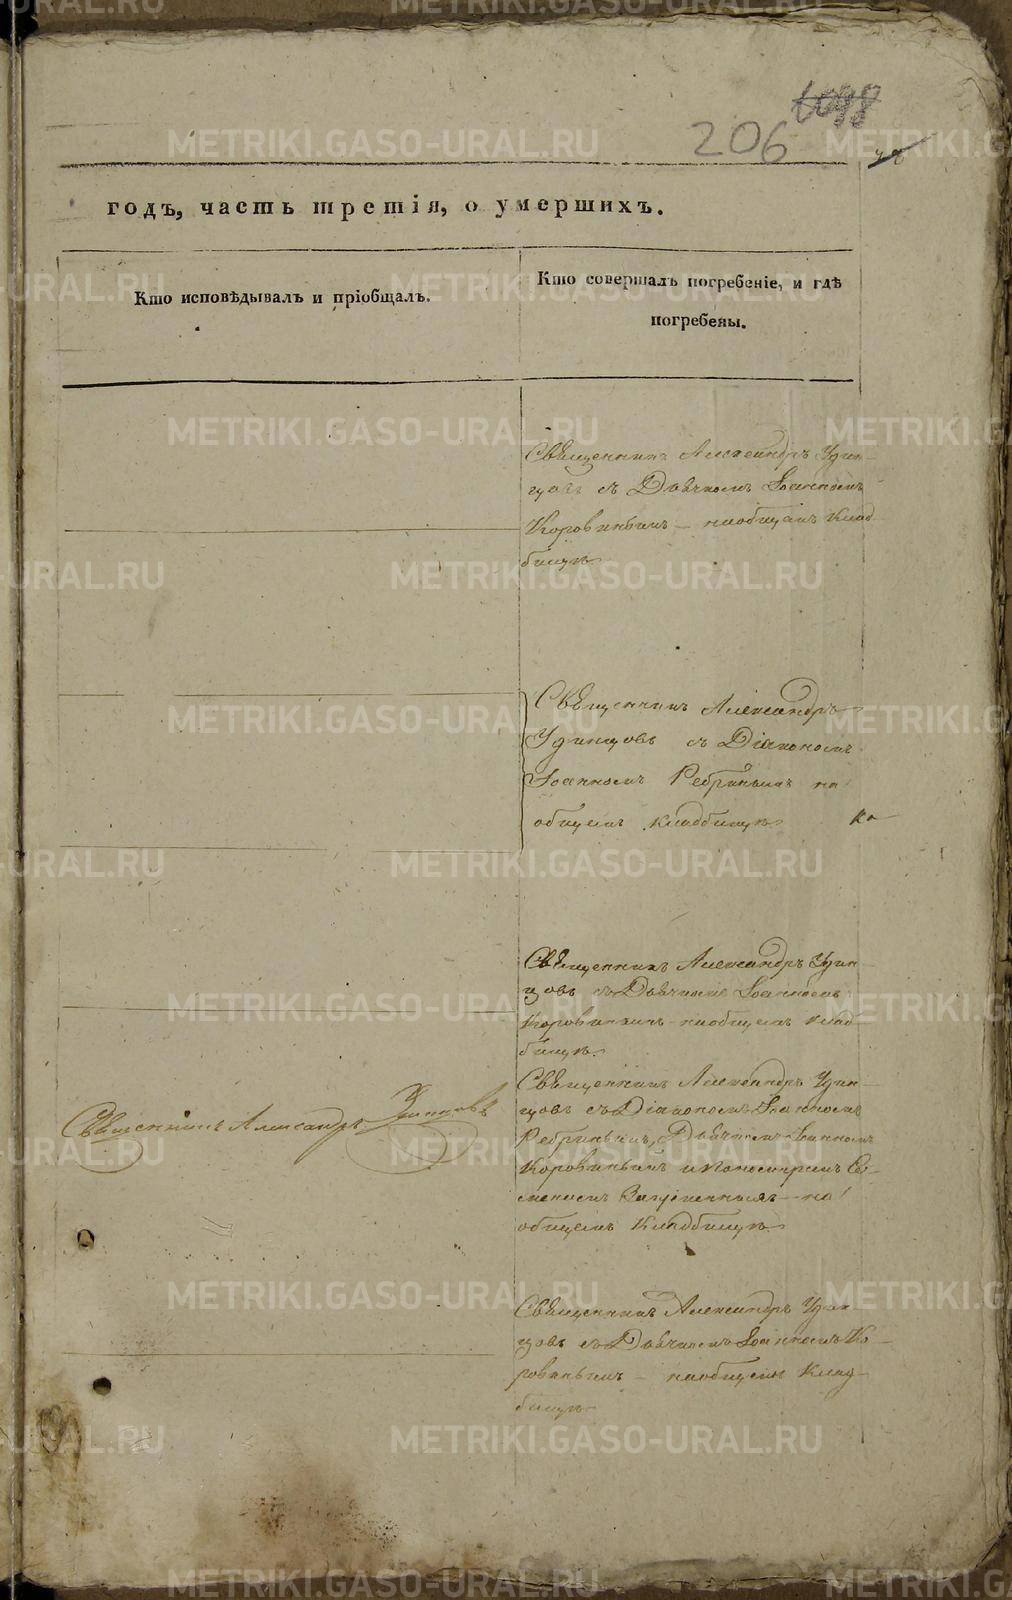 206
годъ, часть третія, о умершихъ.
Кто исповѣдывалъ и пріобщалъ.
Кто совершалъ погребеніе, и гдѣ
погребены.
Священникъ Александръ Удин-
цовъ съ Дьячкомъ Іоанномъ
Коровинымъ – на общемъ клад-
бищѣ.
Священникъ Александръ
Удинцовъ съ Діакономъ
Іоанномъ Ребринымъ на
общемъ кладбищѣ.
Священникъ Александръ Удин-
цовъ съ Дьячкомъ Іоанномъ
Коровинымъ – на общемъ клад-
бищѣ.
Священникъ Александръ Удинцовъ
Священникъ Александръ Удин-
цовъ съ Діакономъ Іоанномъ
Ребринымъ, Дьячкомъ Іоанномъ
Коровинымъ и Пономаремъ Се-
меномъ – на
общемъ кладбищѣ.
Священникъ Александръ Удин-
цовъ съ Дьячкомъ Іоанномъ Ко-
ровинымъ – на общемъ клад-
бищѣ.
METRIKI.GASO-URAL.RU